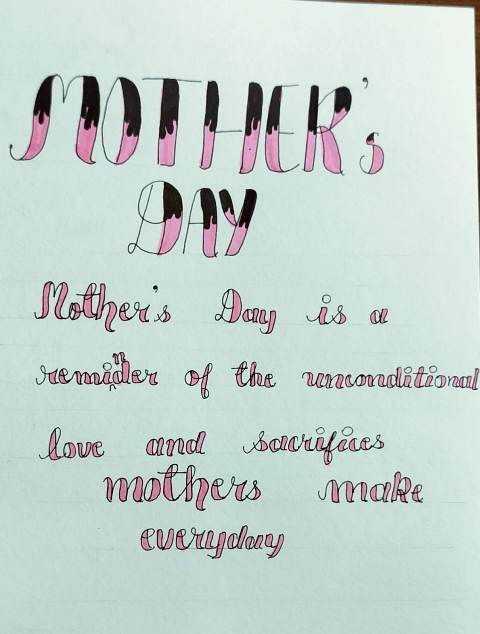 MOTHER's
DAY
Mother's Day is a
reminder of the unconditional
love and sacrifices
mothers make
everyday